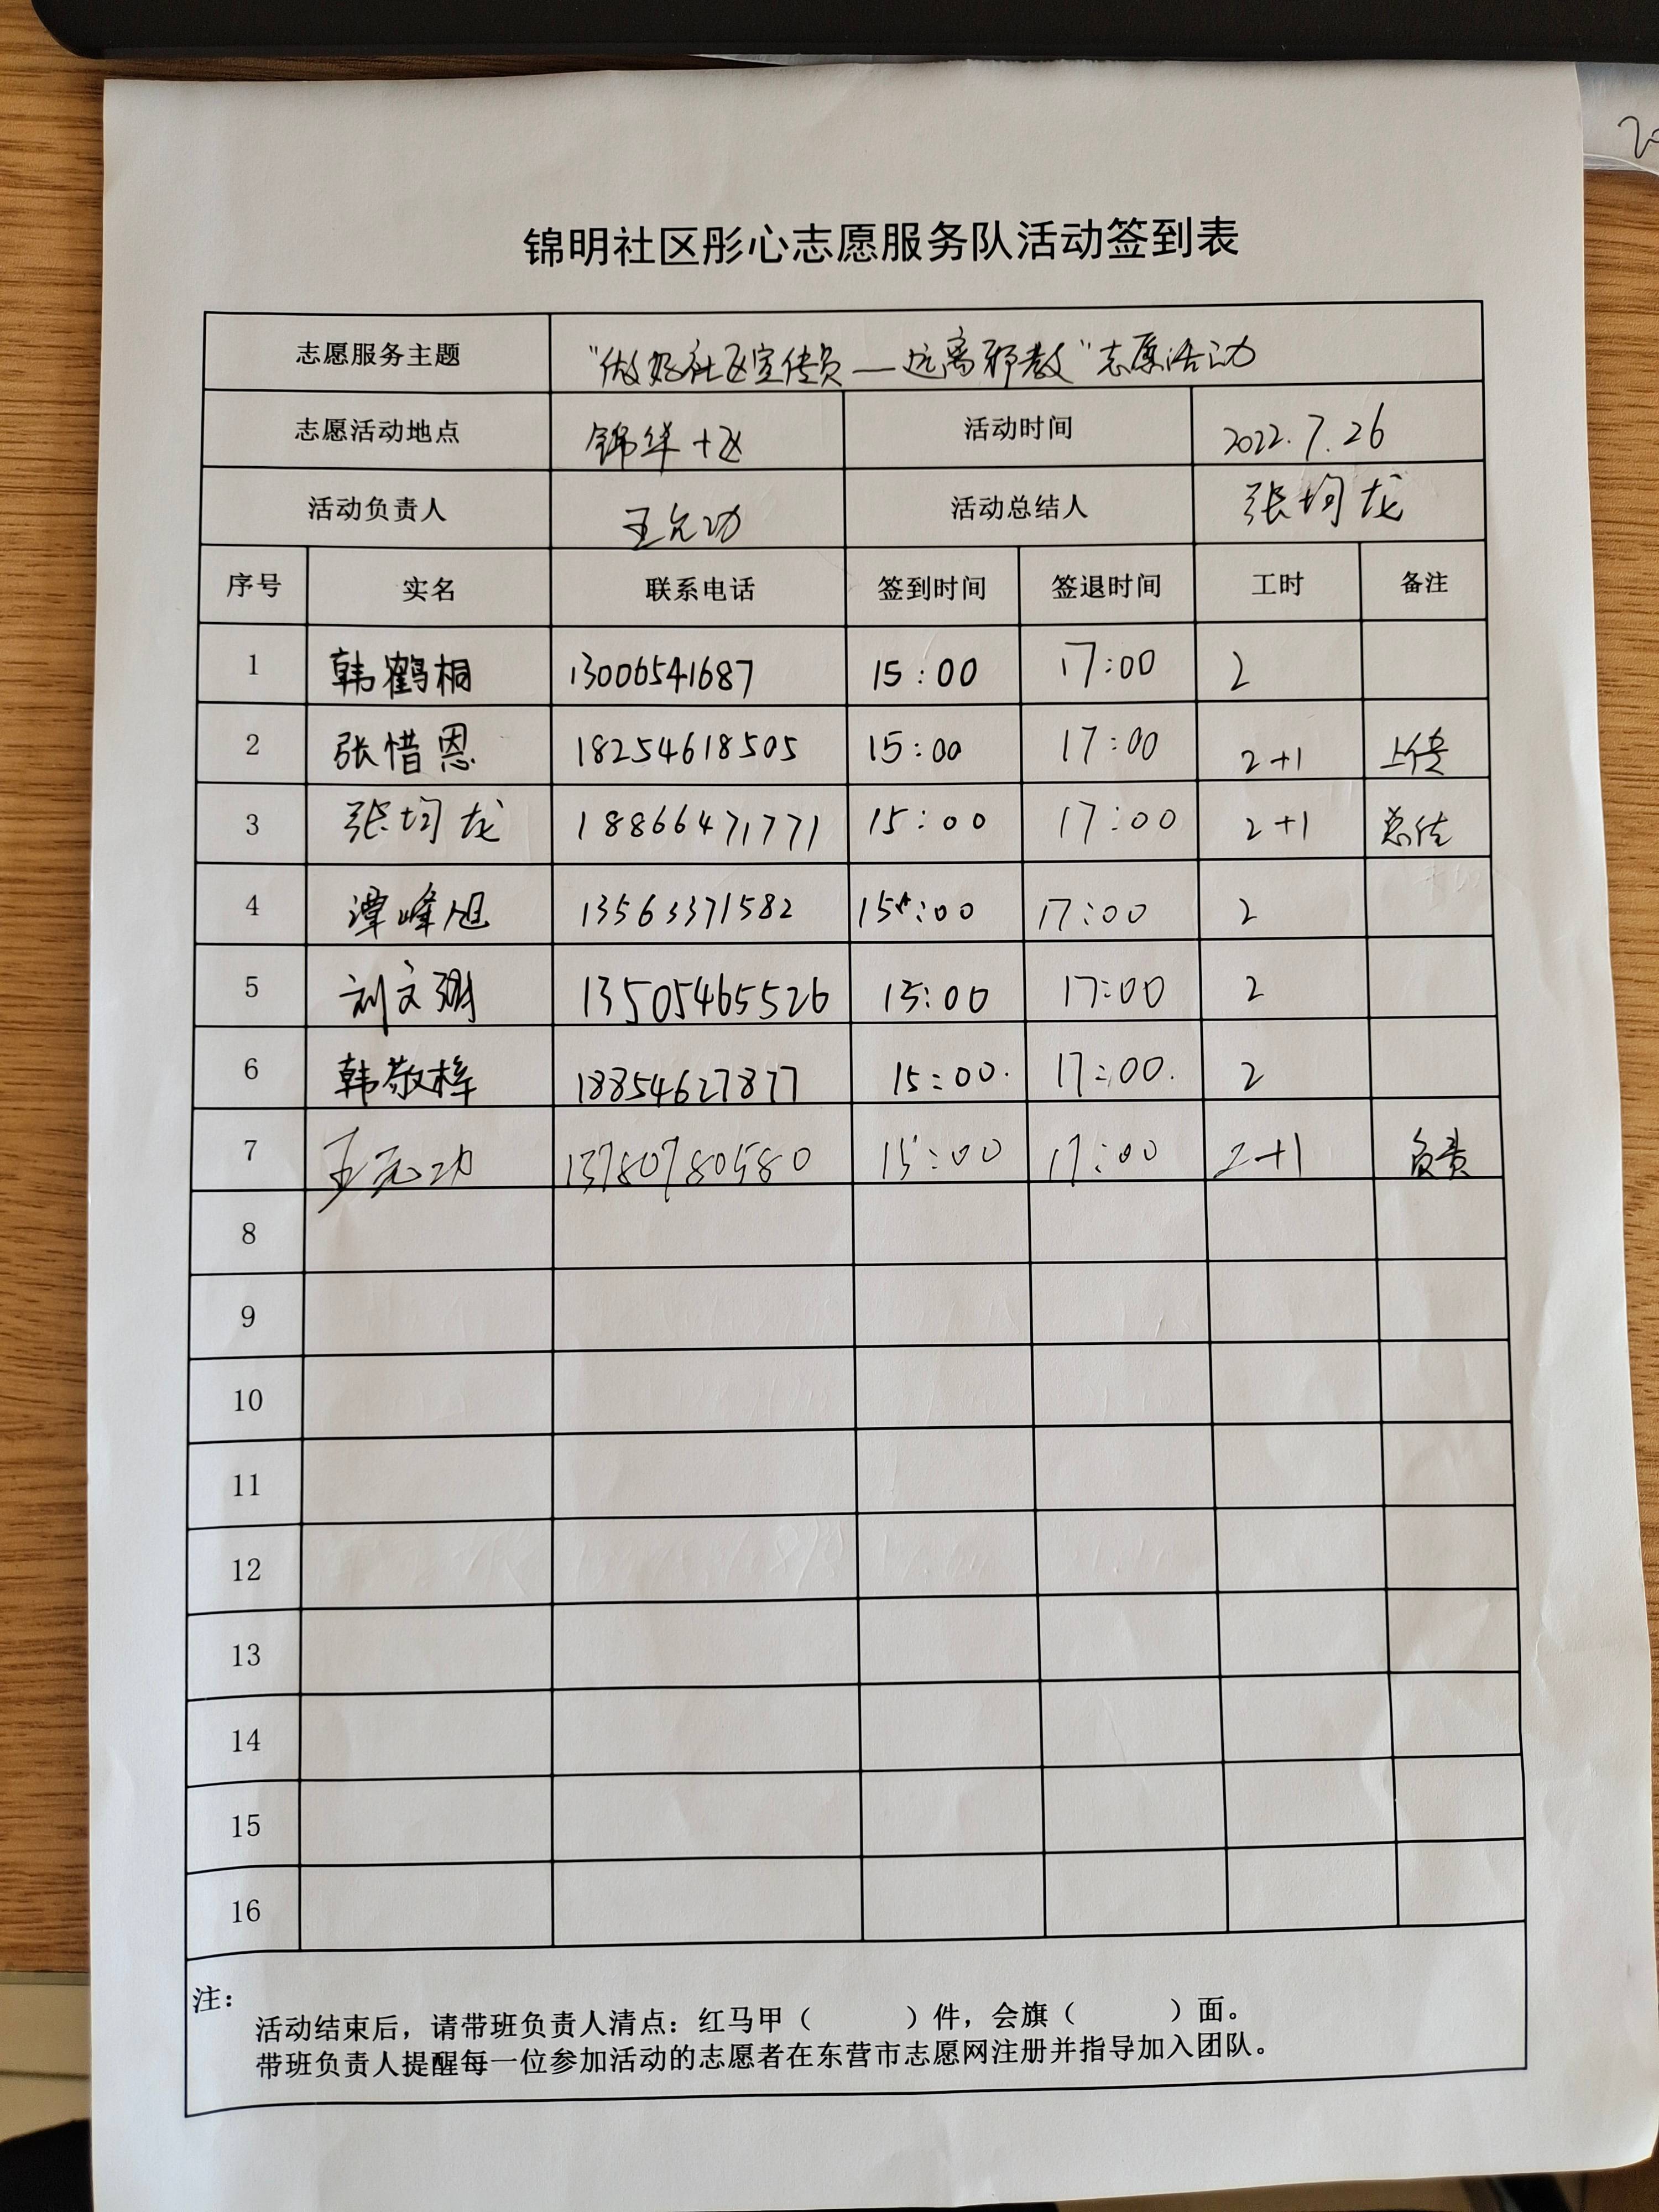 锦明社区彤心志愿服务队活动签到表
志愿服务主题 “做好社区宣传员——远离邪教”志愿活动
志愿活动地点 锦华十区 活动时间 2022.7.26
活动负责人 王允功 活动总结人 张均龙
序号 实名 联系电话 签到时间 签退时间 工时 备注
1 韩鹤桐 13006541687 15:00 17:00 2
2 张惜恩 18254618505 15:00 17:00 2+1 上传
3 张均龙 18866471771 15:00 17:00 2+1 总结
4 谭峰旭 13563371582 15:00 17:00 2
5 刘文 13505465526 15:00 17:00 2
6 韩敬梓 18854627877 15:00. 17:00. 2
7 王允功 13780780580 15:00 17:00 2+1 负责
8
9
10
11
12
13
14
15
16
注：
活动结束后，请带班负责人清点：红马甲（ ）件，会旗（ ）面。
带班负责人提醒每一位参加活动的志愿者在东营市志愿网注册并指导加入团队。